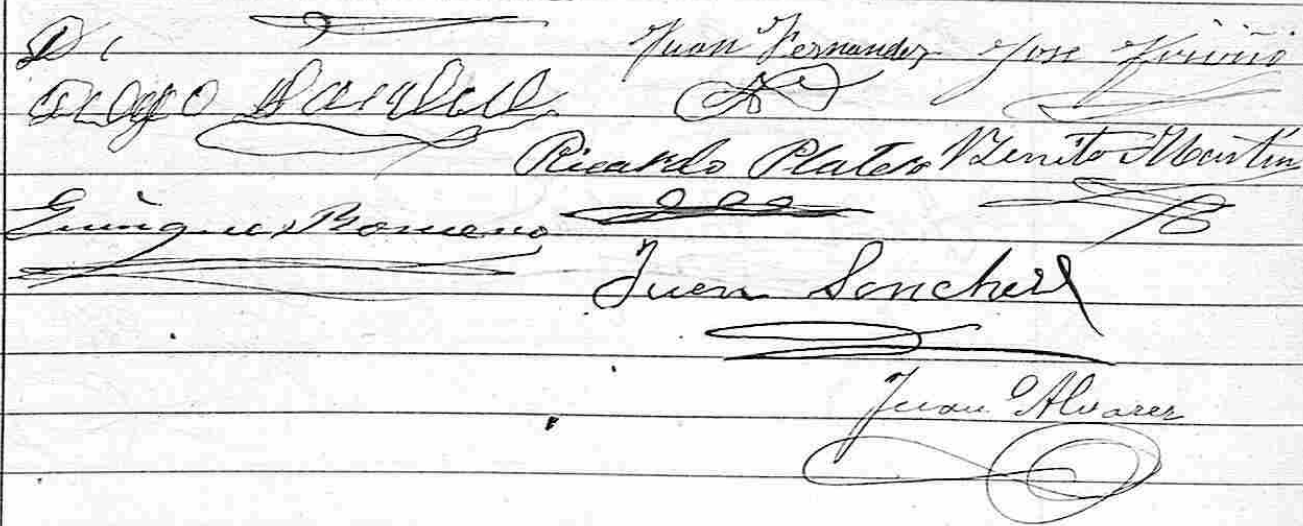 Juan Fernandez Jose
Ricardo Platero Benito Martin
Enrique Romero
Juan Sanchez
Juan Alvarez